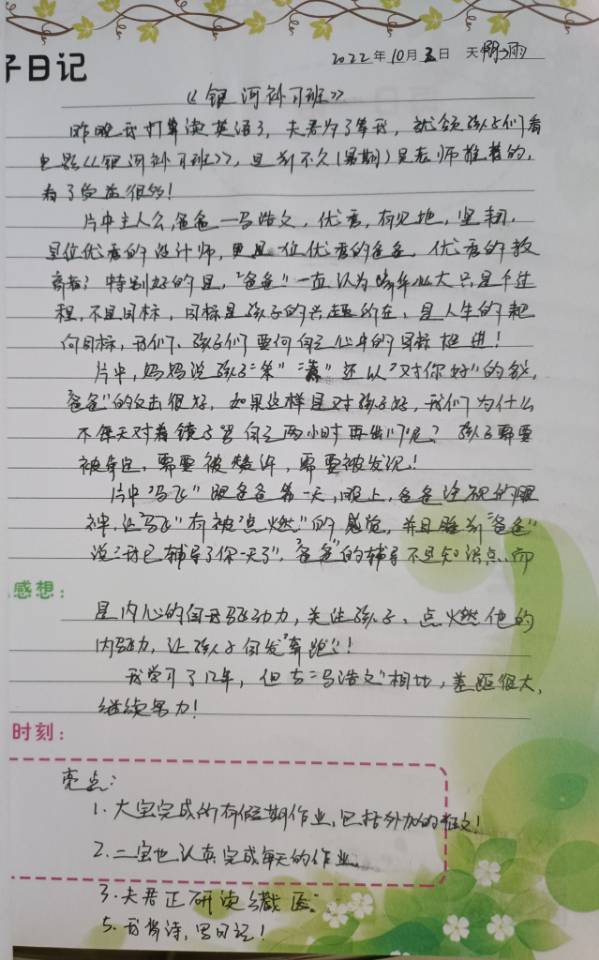 子日记
2022年10月3日 天阴雨
《银河补习班》
昨晚我打算读英语了,夫君为了等我,就领孩子们看
电影《银河补习班》,是前不久(暑期)吴老师推荐的,
看了受益很多!
片中主人公,爸爸—马浩文,优秀,有见地,坚韧,
是位优秀的设计师,更是一位优秀的爸爸,优秀的教
育者?特别好的是,"爸爸"一直认为清华北大只是个过
程,不是目标,目标是孩子的兴趣所在,是人生的靶
向目标,我们、孩子们要向自己心中的目标挺进!
片中,妈妈说孩子"笨""蠢"还以"对你好"的
"爸爸"的反击很好,如果这样是对孩子好,我们为什么
不每天对着镜子骂自己两小时再出门呢?孩子需要
被肯定,需要被赞许,需要被发现!
片中"马飞"跟爸爸第一天,晚上,爸爸注视的眼
神,让"马飞"有被"点燃"的感觉,并且睡前"爸爸"
说:我已辅导了你一天了","爸爸"的辅导不是知识点,而
感想:
是内心的自我驱动力,关注孩子、点燃他的
内驱力,让孩子自发"奔跑"!
我学习了几年,但与"马浩文"相比,差距很大,
继续努力!
时刻:
亮点:
1.大宝完成所有假期作业,包括外加的征文!
2.二宝也认真完成每天的作业。
3.夫君正研读
5.我背诗,写日记!